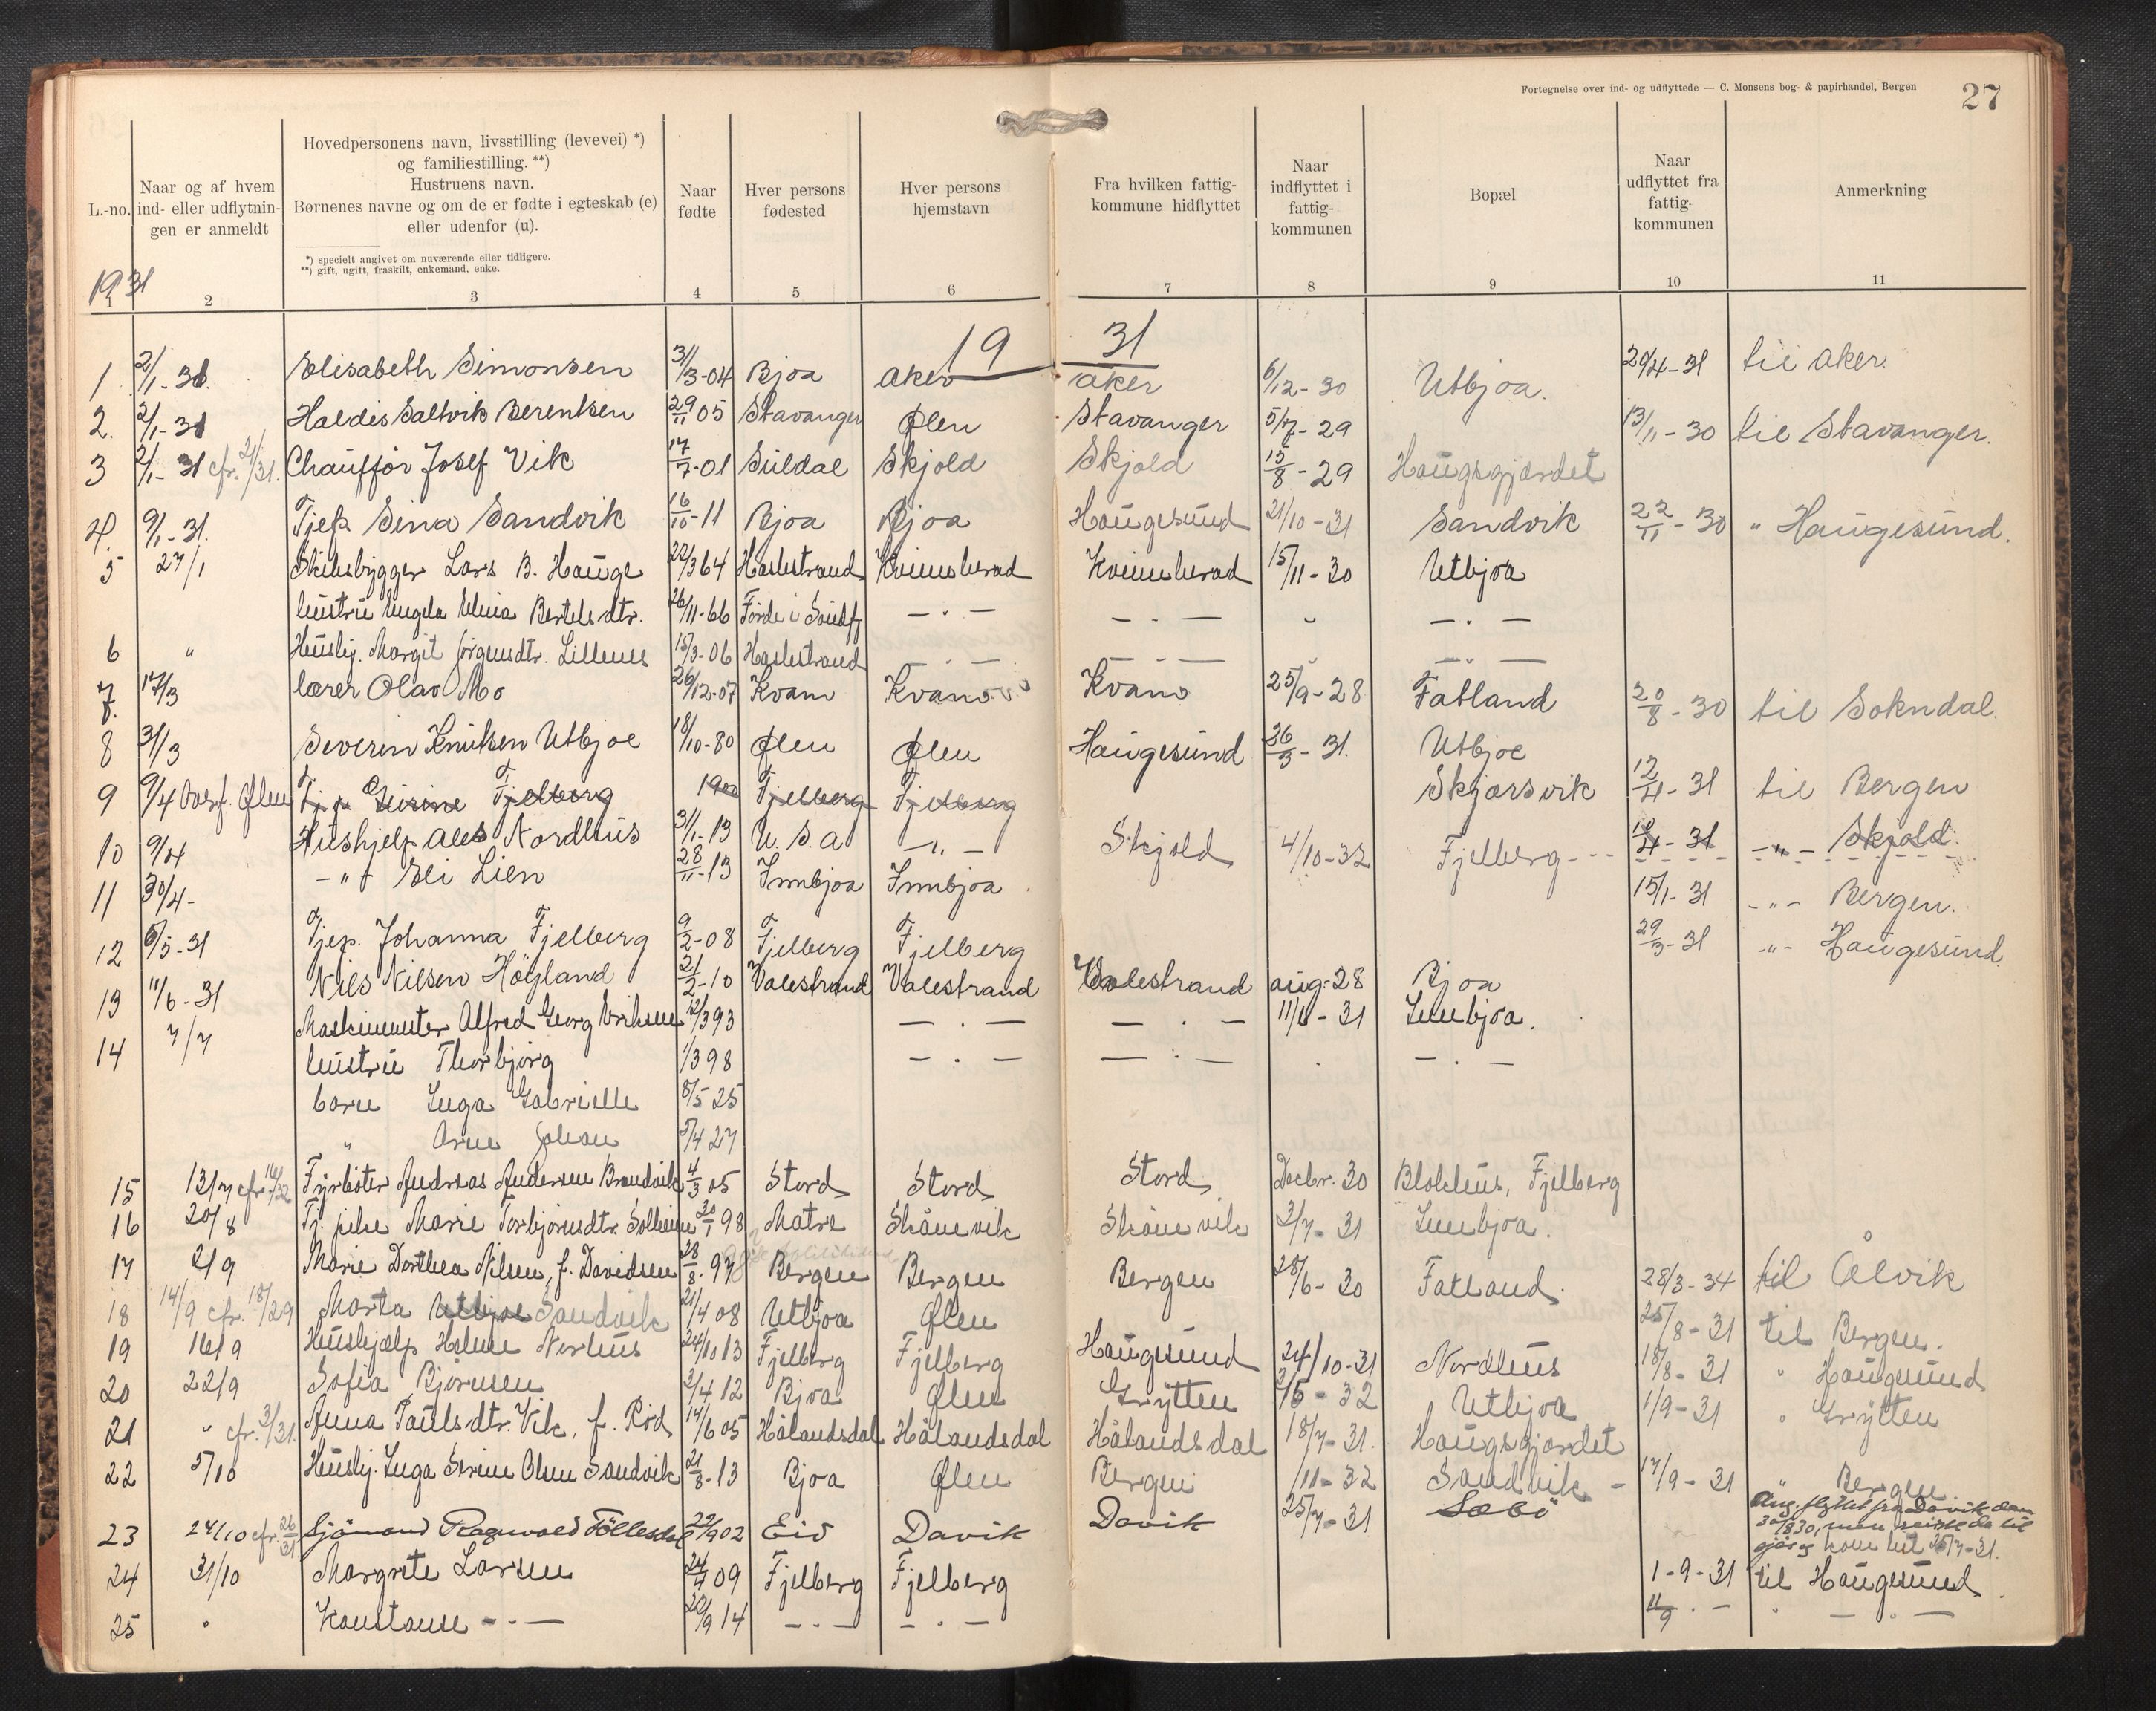 Fortegnelse over ind- og udflyttede — C. Monsens bog- & papirhandel, Bergen
27
L.-no.
Naar og af hvem
ind- eller udflytnin-
gen er anmeldt
Hovedpersonens navn, livsstilling (levevei) *)
og familiestilling. **)
Hustruens navn.
Børnenes navne og om de er fødte i egteskab (e)
eller udenfor (u).
*) specielt angivet om nuværende eller tidligere.
**) gift, ugift, fraskilt, enkemand, enke.
Naar
fødte
Hver persons
fødested
Hver persons
hjemstavn
Fra hvilken fattig-
kommune hidflyttet
Naar
indflyttet i
fattig-
kommunen
Bopæl
Naar
udflyttet fra
fattig-
kommunen
Anmerkning
1931
1 2 3 4 5 6 7 8 9 10 11
19 31
1 2/1-31. Elisabeth Simonsen 31/3-04 Bjoa Aker Aker 6/12-30 Utbjoa. 29/4-31 til Aker.
2. 2/1-31 Haldis Saltvik Berentsen 29/11 05 Stavanger Ølen Stavanger 5/7-29 13/11-30 til Stavanger.
3 2/1-31 cfr. 21/31. Chauffør Josef Vik 17/7-01 Suldal Skjold Skjold 15/8-29 Haugsgjærdet
4. 9/1-31. Tjep. Sina Sandvik 16/10-11 Bjoa Bjoa Haugesund 21/10-31 Sandvik 22/11-30 " Haugesund.
5 27/1 Skibsbygger Lars B. Hauge 22/3 64 Haslestrand Kvinnherad Kvinnherad 15/11-30 Utbjoa
hustru Bertelsdtr. 26/11-66 Førde i Søndfj — . — — . — " — . —
6 " Hushj. Margit Jørgensdtr. Lillenes 15/3-06 Haslestrand — . — — . — " — " —
7. 17/3 lærer Olav Mo 26/12-07 Kvam Kvam Kvam 25/9-28 Fatland 20/8-30 til Sokndal.
8 31/3 Severin Knutsen Utbjoe 18/10-80 Ølen Ølen Haugesund 26/3-31. Utbjoe
9 9/4 Ølen Tjep. Fjelberg 1900 Fjelberg Fjelberg Skjærsvik 12/4-31 til Bergen
10 9/4 Hushjelp Nordhus 31/1-13 U.S.A — " — Skjold 4/10-32 Fjelberg --- 10/4-31 -"- Skjold.
11 30/4- -"- Eli Lien 28/11-13 Innbjoa Innbjoa 15/1-31 -"- Bergen.
12 6/5-31 Tjep. Johanna Fjelberg 9/2-08 Fjelberg Fjelberg 29/3-31 -"- Haugesund.
13 11/6-31 Nils Nilsen Høgland 21/2-10 Valestrand Valestrand Valestrand aug.-28 Bjoa
14 7/7 Maskinmester Alfred Georg Eriksen 12/3 93 — . — — . — 11/6-31 Innbjoa.
hustru Thorbjørg 1/3 98 — . — — . — . — . —
barn Inga Gabrielle 8/5 25
" Arne Johan 5/4 27
15 13/7 cfr. 16/32 Fyrbøter Andreas Andersen Brandvik 4/3 05 Stord Stord Stord Decbr. 30 Blokhus, Fjelberg
16 20/8 Tj. pike Marie Torbjørnsdtr. Solheim 20/1 98 Matre Skånevik Skånevik 3/7-31 Innbjoa.
17 2/9 Marie Dorthea Nilsen, f. Davidsen 28/8.97 Bergen Bergen Bergen 28/6-30 Fatland. 28/3-34 til Ålvik
18 14/9 cfr. 18/29 Marta Utbjoe Sandvik 21/4 08 Utbjoa Ølen 25/8-31 til Bergen.
19 16/9 Hushjælp Helene Nerhus 24/10 13 Fjelberg Fjelberg Haugesund 24/10-31 Nordhus 18/8-31 " Haugesund
20 22/9 Sofia Bjørnsen 3/4 12 Bjoa Ølen Grytten 3/5-32 Utbjoa 1/9-31 " Grytten
21 " cfr. 3/31. Anna Paulsdtr. Vik, f. Rød 14/6 05 Hålandsdal Hålandsdal Hålandsdal 18/7-31. Haugsgjærdet
22 5/10 Hushj. Inga Serine Olsen Sandvik 21/8-13 Bjoa Ølen Bergen /11-32 Sandvik - 17/9-31 " Bergen
23 24/10 cfr. 26/31 Sjømand Ragnvald Følles 22/9 02 Eid Davik Davik 25/7-31 Sæbø Ang. flyttet fra Davik den
30/8 30, men reiste da til
sjøs og kom hit 25/7-31.
24 31/10 Margrete Larsen 24/4 09 Fjelberg Fjelberg 1-9-31 til Haugesund.
25 " Konstanse -"- 22/9 14 -"- -"- 11/9 . — " — " —